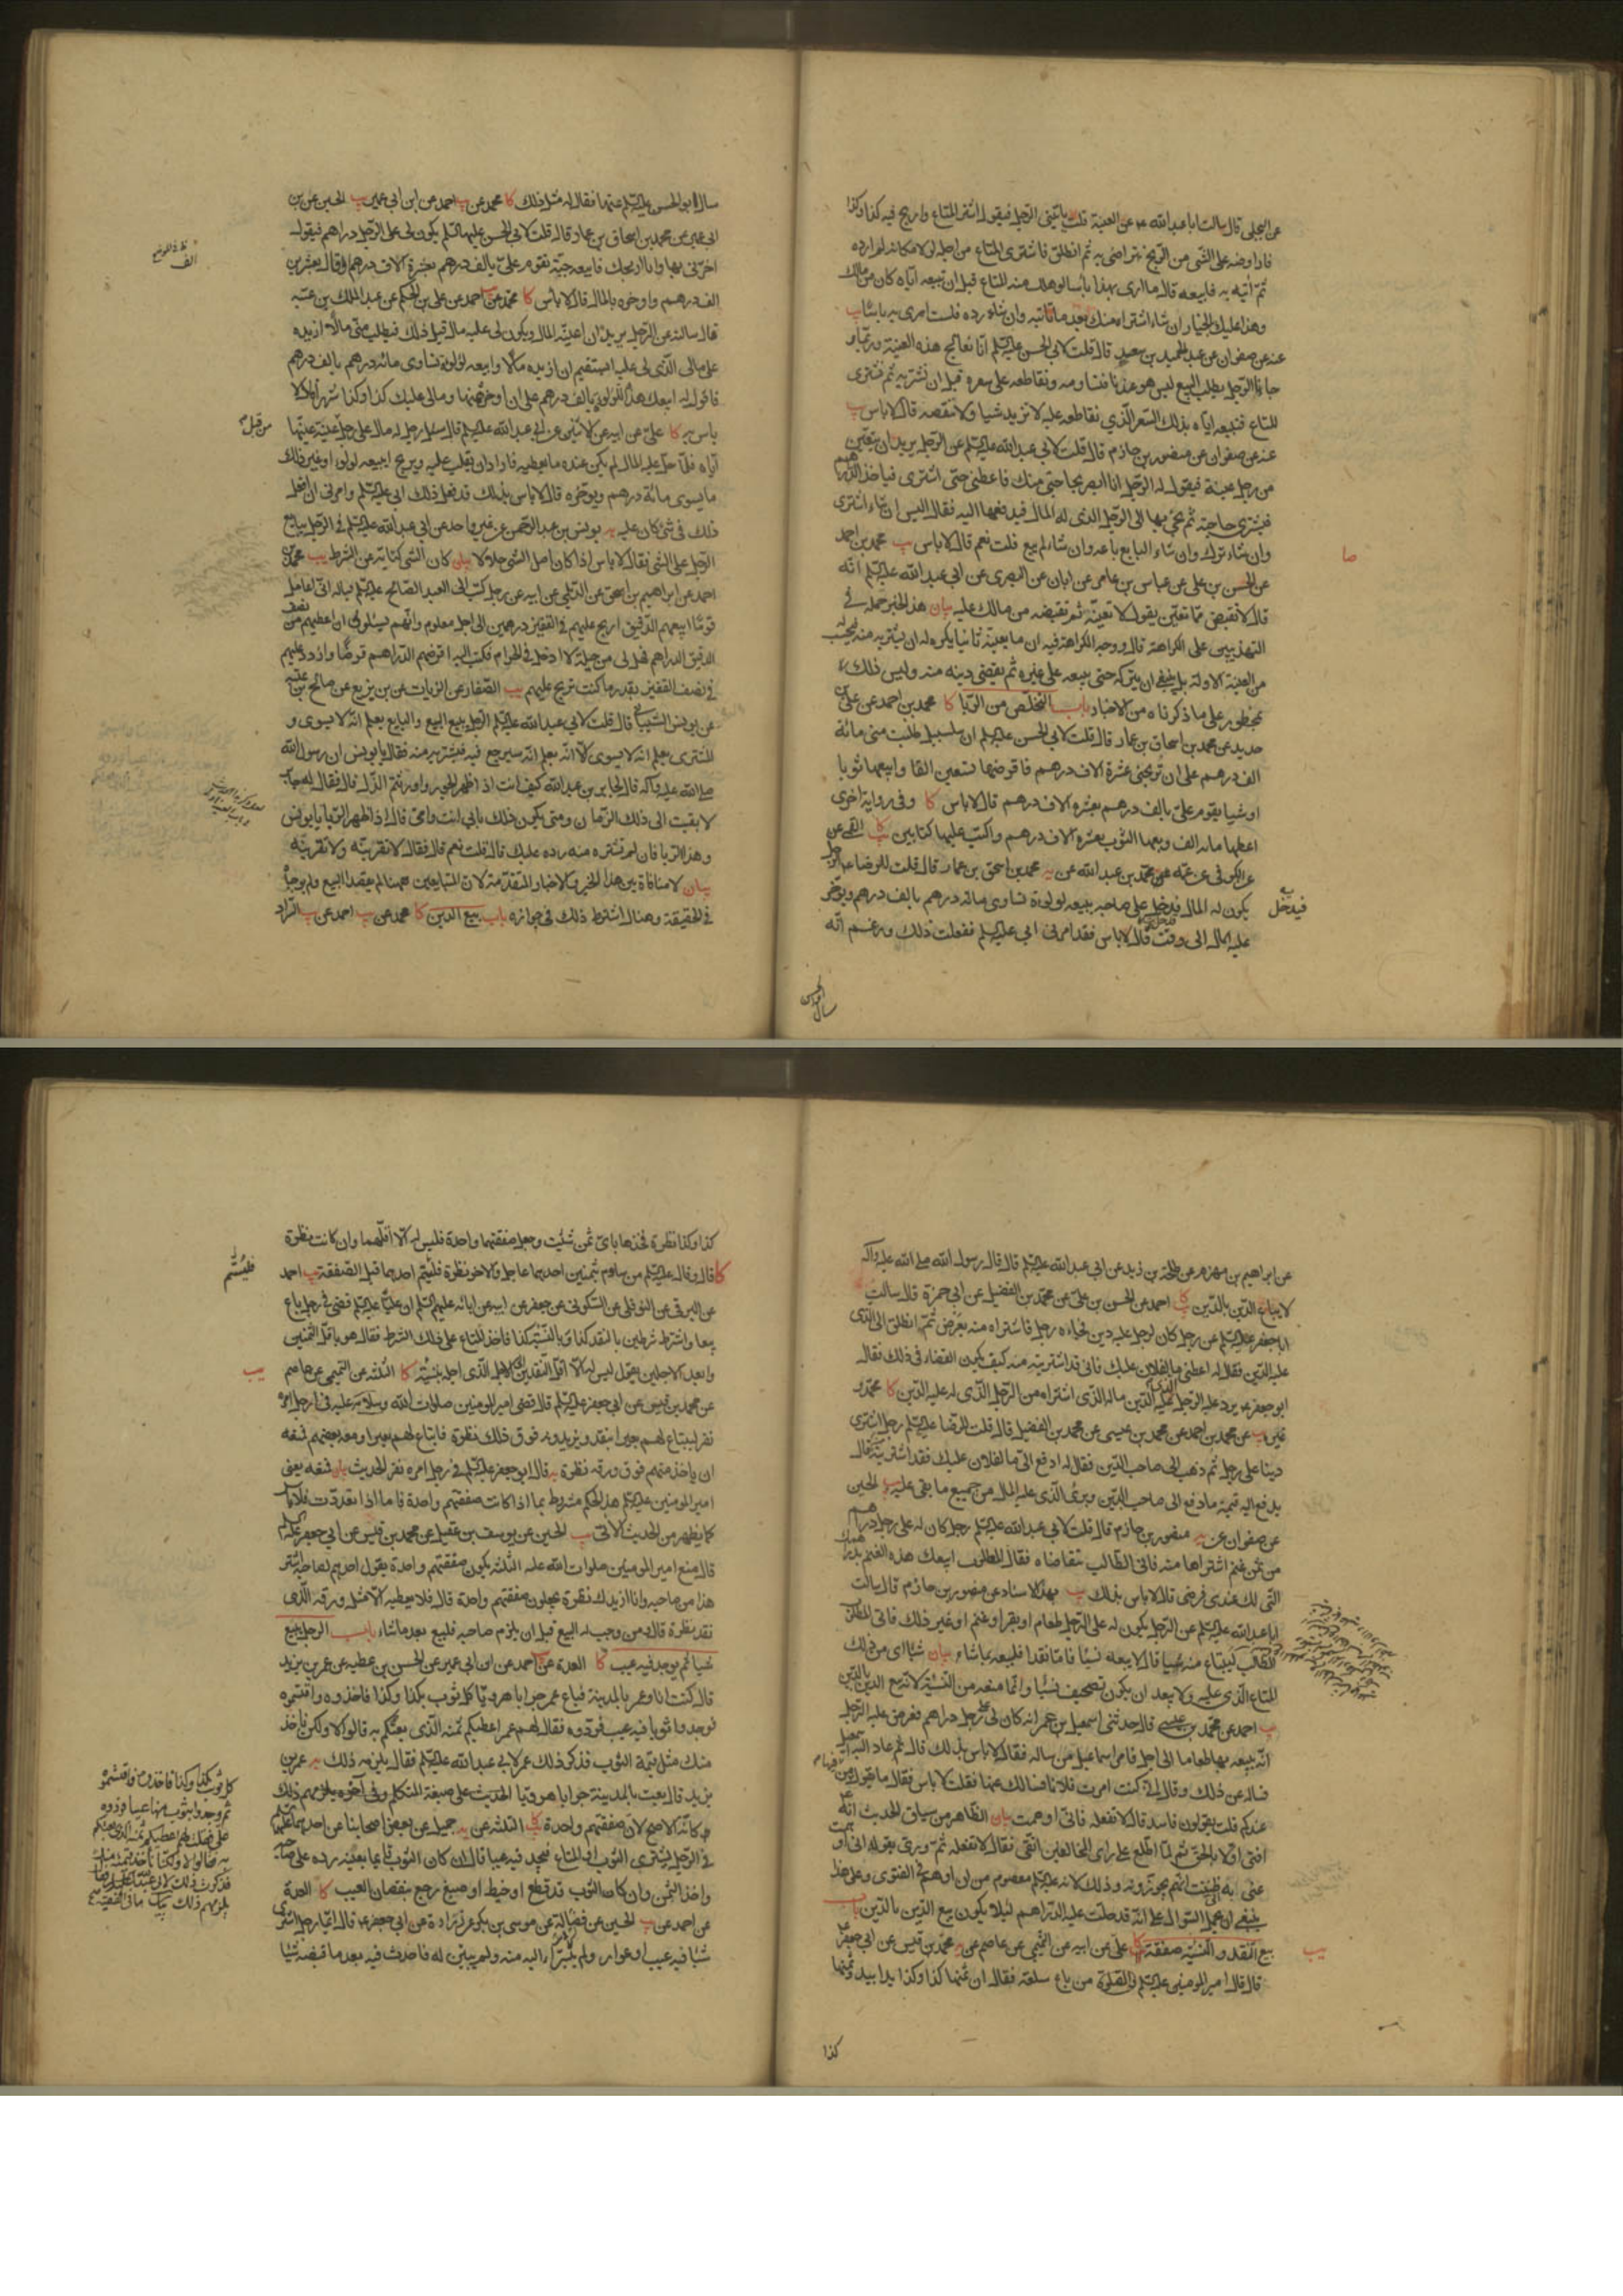 عن البجلي قال سالت ابا عبدالله ع عن العينة قلت ياتيني الرجل فيقول اشتر المتاع واربح فيه كذا وكذا
فاراوضه على الشي من الربح نتراضى به ثم انطلق فاشتري المتاع من اجله لولا مكانه لم ارده
ثم آتيه به فابيعه قال ما ارى بهذا باسا لو هلك منه المتاع قبل ان تبيعه اياه كان من مالك
وهذا عليك بالخيار ان شاء اشتراه منك بعد ما تاتيه وان شاء رده فلست ارى به باسا يب
عنه عن صفوان عن عبدالحميد بن سعد قال قلت لابي الحسن عليه السلم انا نعالج هذه العينة وربما
جاءنا الرجل يطلب البيع ليس هو عندنا فنساومه ونقاطعه على سعره قبل ان نشتريه ثم نشتري
المتاع فنبيعه اياه بذلك السعر الذي نقاطعه عليه لا نزيد شيا ولا ننقصه قال لا باس يب
عنه عن صفوان عن منصور بن حازم قال قلت لابي عبدالله عليه السلم عن الرجل يريد ان يتعين
من رجل عينة فيقول له الرجل انا ابصر بحاجتي منك فاعطني حتى اشتري فياخذ الدراهم
فيشتري حاجته ثم يجئ بها الى الرجل الذي له المال فيدفعها اليه فقال اليس ان شاء اشترى
وان شاء ترك وان شاء البايع باعه وان شاء لم يبع قلت نعم قال لا باس يب محمد بن احمد
عن الحسن بن علي عن عباس بن عامر عن ابان عن البصري عن ابي عبدالله عليه السلم انه
قال لا تقبض مما تعين يقول لا تعينه ثم تقبضه من مالك عليه بيان هذا الخبر حمله في
التهذيبين على الكراهة قال ووجه الكراهة فيه ان ما يعينه ثانيا يكره له ان يشتريه منه
من العينة الاولة بل ينبغي ان يتركه حتى يبيعه على غيره ثم يقضي دينه منه وليس ذلك
بمحظور على ما ذكرناه من الاخبار باب التخلص من الربا كا محمد بن احمد عن علي بن
حديد عن محمد بن اسحاق بن عمار قال قلت لابي الحسن عليه السلم ان سلسبيل طلبت مني مائة
الف درهم على ان تربحني عشرة الاف درهم فاقرضها تسعين الفا وابيعها ثوبا
او شيا يقوم علي بالف درهم بعشرة الاف درهم قال لا باس كا وفي رواية اخرى
اعطها مائة الف وبعها الثوب بعشرة الاف درهم واكتب عليها كتابين
عن الكوفي عن عمه عن محمد بن عبدالله عن محمد بن اسحق بن عمار قال قلت للرضا ع الرجل
يكون له المال فيدخل على صاحبه يبيعه لولؤة تساوي مائة درهم بالف درهم ويؤخر
عليه المال الى وقت قال لا باس فقد امرني ابي عليه السلم ففعلت ذلك وزعم انه
فيدخل
سال ابو الحسن
سال ابو الحسن عليه السلم عنها فقال له مثل ذلك كا محمد عن احمد عن ابن ابي عمير يب الحسين عن ابن
ابي عمير عن محمد بن اسحاق بن عمار قال قلت لابي الحسن عليه السلم يكون لي على الرجل دراهم فيقول
اخرني بها وانا اربحك فابيعه جبة تقوم علي بالف درهم بعشرة الاف درهم او قال بعشرين
الف درهم واوخره بالمال قال لا باس كا محمد عن احمد عن علي بن الحكم عن عبد الملك بن عتبة
قال سالته عن الرجل يريد ان اعينه المال ويكون لي عليه مال قبل ذلك فيطلب مني مالا ازيده
على مالي الذي لي عليه ايستقيم ان ازيده مالا وابيعه لؤلؤة تساوي مائة درهم بالف درهم
فاقول له ابيعك هذه اللؤلؤة بالف درهم على ان اوخر ثمنها ومالي عليك كذا وكذا شهرا قال لا
باس به كا علي عن ابيه عن عن ابي عبدالله عليه السلم قال سئل رجل له مال على رجل عينة عينها
اياه فلما حل عليه المال لم يكن عنده ما يعطيه فاراد ان يقلب عليه ويربح ايبيعه لولوا وغير ذلك
ما يسوى مائة درهم ويؤخره قال لا باس بذلك قد فعل ذلك ابي عليه السلم وامرني ان افعل
ذلك في شئ كان عليه يه يونس بن عبد الرحمن عن غير واحد عن ابي عبدالله عليه السلم في الرجل يبايع
الرجل على الشي فقال لا باس اذا كان اصل الشي حلالا بيان كان الشي كناية عن الشرط يب محمد بن
احمد عن ابراهيم بن اسحق عن الديلمي عن ابيه عن رجل كتب الى العبد الصالح عليه السلم يساله اني اعامل
قوما ابيعهم الدقيق اربح عليهم في القفيز درهمين الى اجل معلوم وانهم يسئلوني ان اعطيهم من نصف
الدقيق الدراهم فهل لي من حيلة لا ادخل في الحرام فكتب اليه اقرضهم الدراهم قرضا وازدد عليهم
في نصف القفيز بقدر ما كنت تربح عليهم يب الصفار عن الزيات عن ابن بزيع عن صالح بن عقبه
عن يونس الشيباني قال قلت لابي عبدالله عليه السلم الرجل يبيع البيع والبايع يعلم انه لا يسوى و
المشتري يعلم انه لا يسوى الا انه يعلم انه سيرجع فيه فيشتريه منه فقال يا يونس ان رسول الله
صلى الله عليه وآله قال لجابر بن عبدالله كيف انت اذا ظهر الجور واورثهم الذل قال فقال له جابر
لا بقيت الى ذلك الزمان ومتى يكون ذلك بابي انت وامي قال اذا ظهر الربا يا يونس
وهذا الربا فان لم تشتره منه رده عليك قال قلت نعم قال فقال لا تقربنه ولا تقربنه
بيان لا منافاة بين هذا الخبر والاخبار المتقدمة لان المتبايعين ههنا لم يقصدا البيع ولم يوجباه
في الحقيقة وهناك اشترط ذلك في جوازه باب بيع الدين كا محمد عن احمد عن السراد
من قبل
عن ابراهيم بن مهزم عن طلحة بن زيد عن ابي عبدالله عليه السلم قال قال رسول الله صلى الله عليه وآله
لا يباع الدين بالدين كا احمد عن الحسن بن علي عن محمد بن الفضيل عن ابي حمزة قال سالت
ابا جعفر عليه السلم عن رجل كان لرجل عليه دين فجاءه رجل فاشتراه منه بعرض ثم انطلق الى الذي
عليه الدين فقال له اعطني ما لفلان عليك فاني قد اشتريته منه كيف يكون القضاء في ذلك فقال
ابو جعفر ع يرد عليه الرجل الذي عليه الدين ماله الذي اشتراه من الرجل الذي له عليه الدين كا محمد و
غيره عن محمد بن احمد عن محمد بن عيسى عن محمد بن الفضيل قال قلت للرضا عليه السلم رجل اشترى
دينا على رجل ثم ذهب الى صاحب الدين فقال له ادفع الي ما لفلان عليك فقد اشتريته قال
يدفع اليه قيمة ما دفع الى صاحب الدين وبرئ الذي عليه المال من جميع ما بقي عليه يب الحسين
عن صفوان عن منصور بن حازم قال قلت لابي عبدالله عليه السلم رجل كان له على رجل دراهم
من ثمن غنم اشتراها منه فاتى الطالب يتقاضاه فقال المطلوب ابيعك هذه الغنم بدراهمك
التي لك عندي فرضي قال لا باس بذلك يب بهذا الاسناد عن منصور بن حازم قال سالت
ابا عبدالله عليه السلم عن الرجل يكون له على الرجل طعام او بقر او غنم او غير ذلك فاتى المطلوب
الطالب ليبتاع منه شيا قال لا يبعه نسيا فاما نقدا فليبعه بما شاء بيان شيا اي من ذلك
المتاع الذي عليه ولا يبعد ان يكون تصحيف نسيا وانما منعه من النسية لانه بيع الدين بالدين
يب احمد عن محمد بن عيسى قال حدثني اسمعيل بن عمر انه كان له على رجل دراهم فعرض عليه الرجل
انه يبيعه بها طعاما الى اجل فامر اسماعيل من ساله فقال لا باس بذلك قال ثم عاد اليه اسمعيل
فساله عن ذلك وقال اني كنت امرت فلانا فسالك عنها فقلت لا باس فقال ما يقول من
عندكم قلت يقولون فاسد قال لا تفعله فاني اوهمت بيان الظاهر من سياق الحديث انه ع
افتى اولا بالحق ثم لما اطلع على راي المخالفين اتقى فقال لا تفعله ثم ورى بقوله اني اوهمت
ينبغي ان يحمل السؤال على انه قد حلت عليه الدراهم لئلا يكون بيع الدين بالدين باب
بيع النقد والنسية صفقة كا علي عن ابيه عن التميمي عن عاصم عن محمد بن قيس عن ابي جعفر ع
قال قال امير المومنين عليه السلم من باع سلعة فقال ان ثمنها كذا وكذا يدا بيد وثمنها
كذا
كذا وكذا نظرة فخذها باي ثمن شئت وجعل صفقتها واحدة فليس له الا اقلهما وان كانت نظرة
كا قال وقال عليه السلم من ساوم بثمنين احدهما عاجل والاخر نظرة فليسم احدهما قبل الصفقة يب احمد
عن البرقي عن النوفلي عن السكوني عن جعفر عن ابيه عن آبائه عليهم السلم ان عليا عليه السلم قضى في رجل باع
بيعا واشترط شرطين بالنقد كذا وبالنسية كذا فاخذ المتاع على ذلك الشرط فقال هو باقل الثمنين
وابعد الاجلين يقول ليس له الا اقل النقدين الى الاجل الذي اجله بنسية كا الثلثة عن التميمي عن عاصم
عن محمد بن قيس عن ابي جعفر عليه السلم قال قضى امير المومنين صلوات الله وسلامه عليه في رجل امره
نفر ليبتاع لهم بعيرا بنقد ويزيدونه فوق ذلك نظرة فابتاع لهم بعيرا ومعه بعضهم فمنعه
ان ياخذ منهم فوق ورقه نظرة يه قال ابو جعفر عليه السلم في رجل امره نفر الحديث بيان فمنعه يعني
امير المومنين عليه السلم هذا الحكم مشروط بما اذا كانت صفقتهم واحدة فاما اذا تعددت فلا باس
كما يظهر من الحديث الاتي يب الحسين عن يوسف بن عقيل عن محمد بن قيس عن ابي جعفر عليه السلم
قال منع امير المومنين صلوات الله عليه الثلثة يكون صفقتهم واحدة يقول احدهم لصاحبه اشتر
هذا من صاحبه وانا ازيدك نظرة يجعلون صفقتهم واحدة قال فلا يعطيه الا مثل ورقه الذي
نقد نظرة قال ومن وجب له البيع قبل ان يلزم صاحبه فليبع بعد ما شاء باب الرجل يبيع
شيا ثم يوجد فيه عيب كا العدة عن احمد عن ابن ابي عمير عن الحسن بن عطيه عن عمر بن يزيد
قال كنت انا وعمر بالمدينة فباع عمر جرابا هرويا كل ثوب بكذا وكذا فاخذوه واقتسموه
فوجدوا ثوبا فيه عيب فردوه فقال لهم عمر اعطيكم ثمنه الذي بعتكم به قالوا لا ولكن ناخذ
منك مثل قيمة الثوب فذكر ذلك عمر لابي عبدالله عليه السلم فقال يلزمه ذلك يه عمر بن
يزيد قال بعت بالمدينة جرابا هرويا الحديث على صيغة المتكلم وفي آخره يلزمهم ذلك
وكانه الاصح لان صفقتهم واحدة كا الثلثة عن جميل عن بعض اصحابنا عن احدهما عليهما السلم
في الرجل يشتري الثوب او المتاع فيجد فيه عيبا قال ان كان الثوب قائما بعينه رده على صاحبه
واخذ الثمن وان كان الثوب قد قطع او خيط او صبغ رجع بنقصان العيب كا العدة
عن احمد عن الحسين عن فضالة عن موسى بن بكر عن زرارة عن ابي جعفر ع قال ايما رجل اشترى
شيا فيه عيب او عوار ولم يتبرأ اليه منه ولم يبين له فاحدث فيه بعد ما قبضه شيا
فليسم
كل ثوب بكذا وكذا فاخذوه فاقتسموه
ثم وجدوا بثوب منها عيبا فردوه